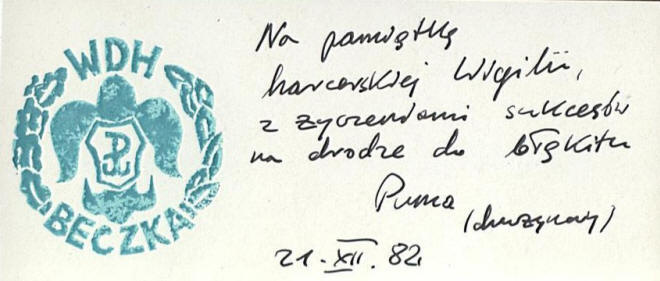 WDH
BECZKA
Na pamiątkę
harcerskiej Wigilii,
z życzeniami sukcesów
na drodze do błękitu
Puma
(drużynowy)
21.XII.82